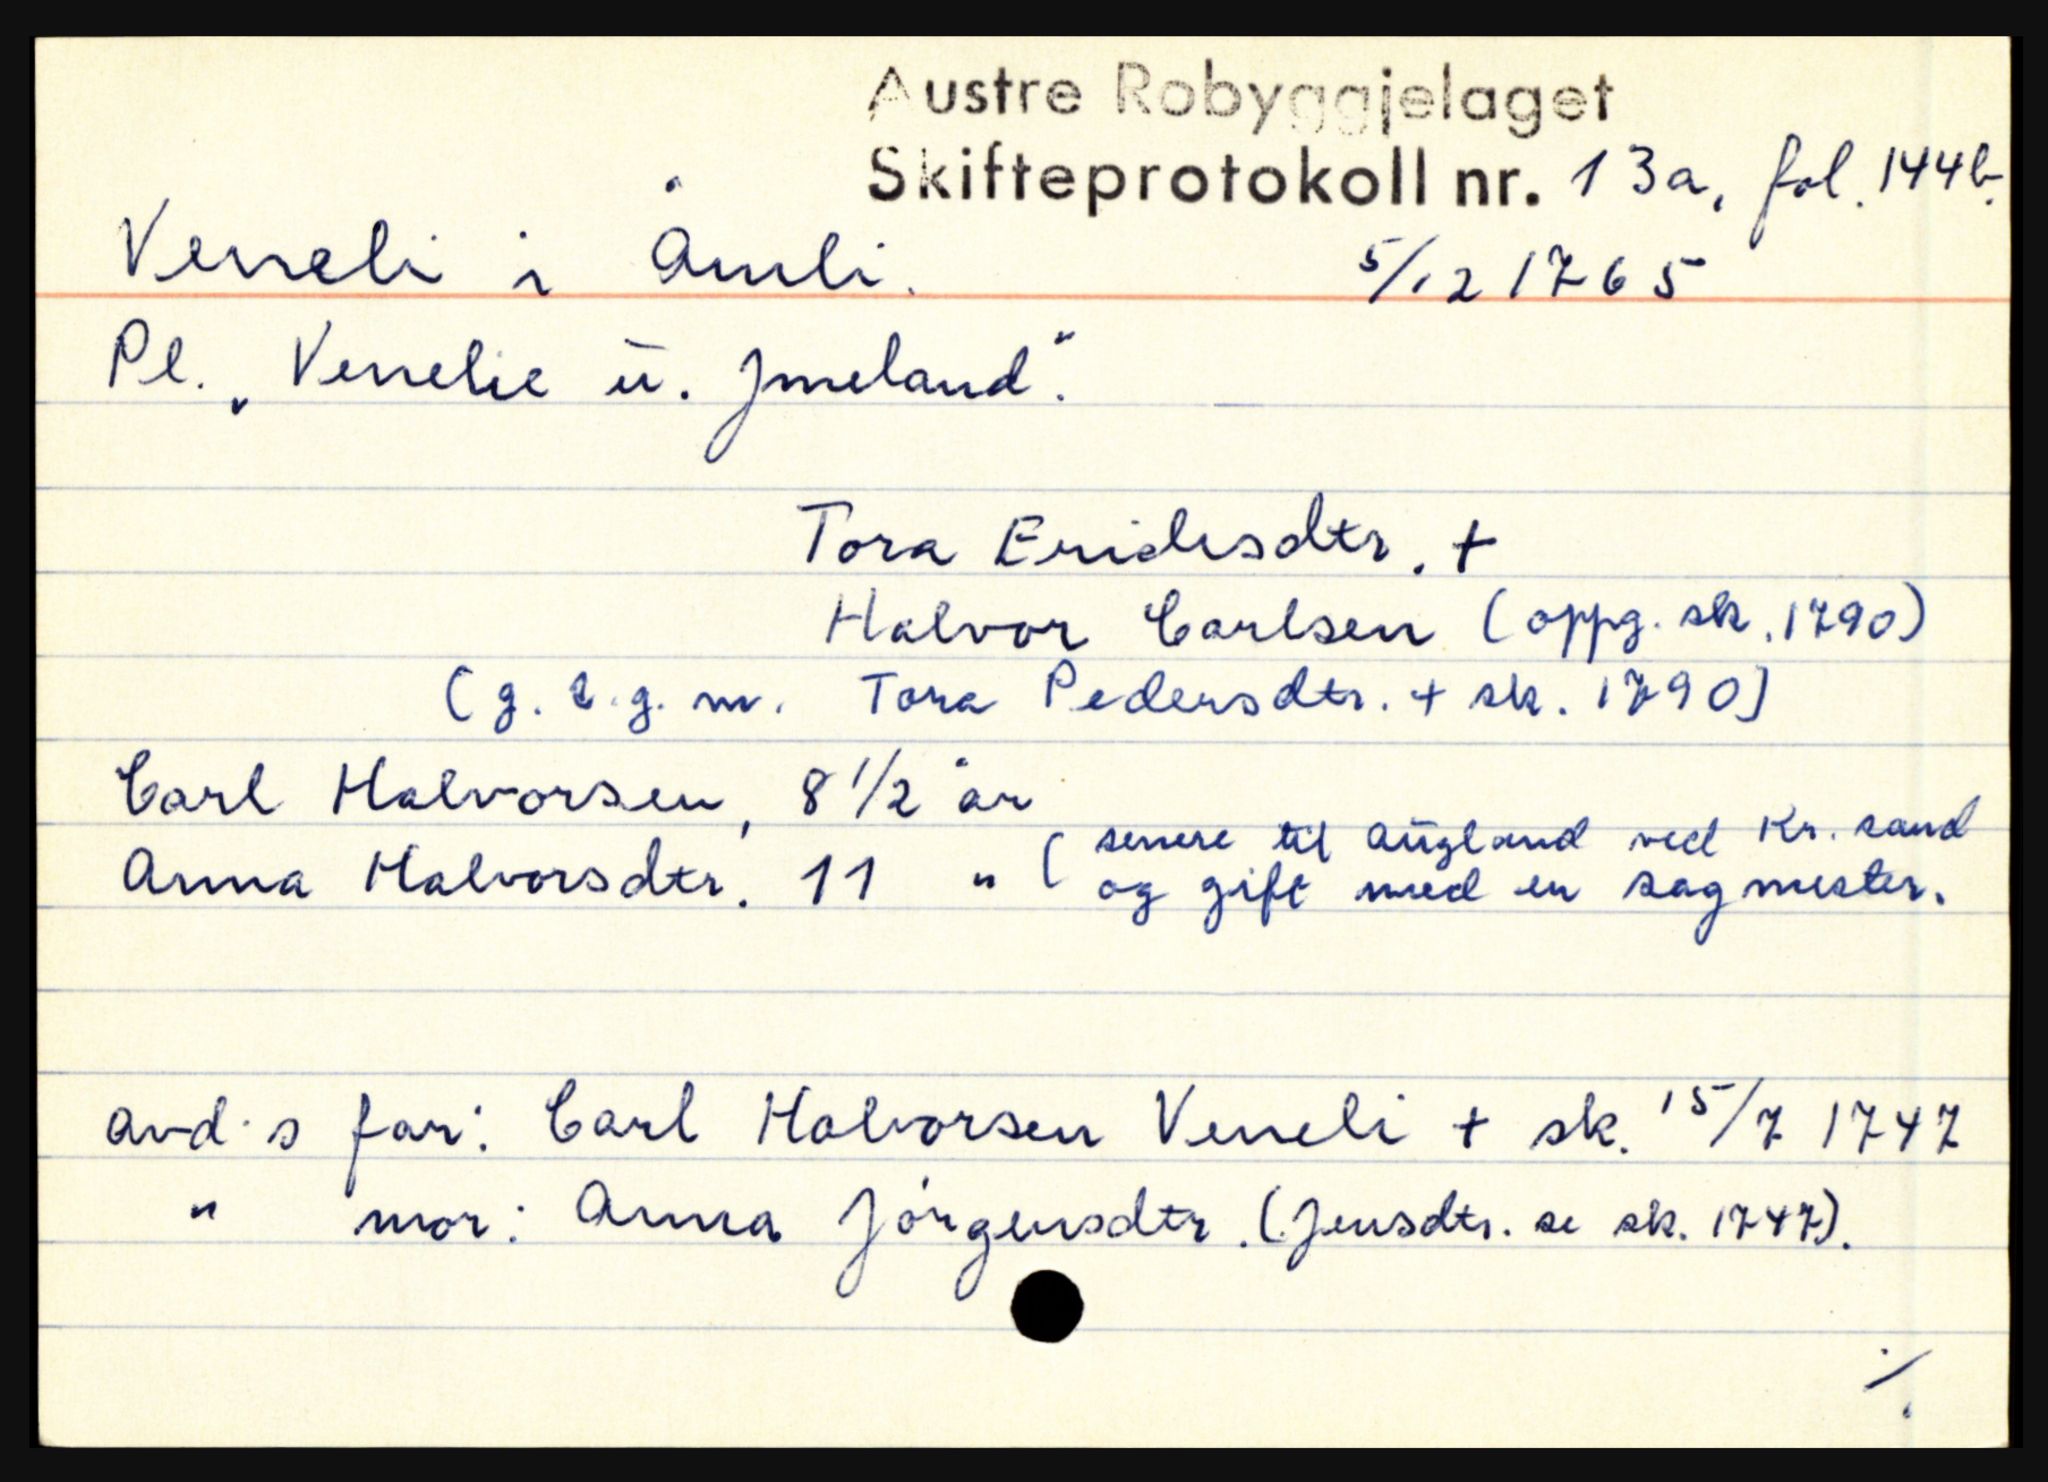 Austre Robyggjelaget
Skifteprotokoll nr. 13a, fol. 144b.
Veneli i Åmli. 5/12 1765
Pl. „Venelie ū. Jmeland".
Tora Erichsdtr. +
Halvor Carlsen (oppg. sk. 1790)
(g. 2. g. m. Tora Pedersdtr. + sk. 1790)
Carl Halvorsen, 8 1/2 år
Anna Halvorsdtr. 11 " (senere til Aūgland ved Kr. sand
og gift med en sagmester.
avd's far: Carl Halvorsen Veneli + sk. 15/7 1747
" mor: Anna Jörgensdtr. (Jensdtr. se sk. 1747).
./.